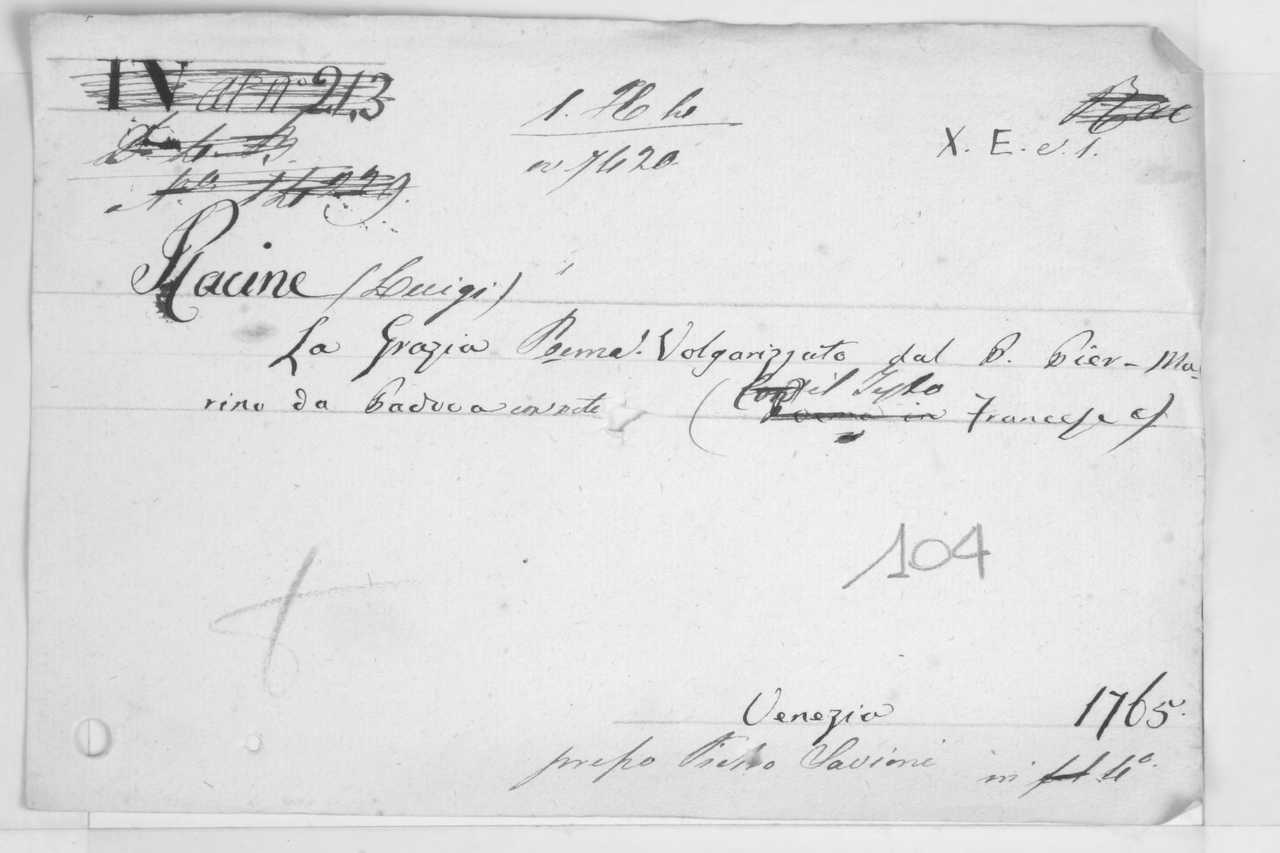 IV at nº 213
X. E. e. 1.
nº 7420
Racine (Luigi)
La Grazia Poema. Volgarizzato dal P. Pier-Ma-
rino da Padova con note (con il Testo Francese)
104
Venezia 1765.
presso Pietro Savioni in 4º.